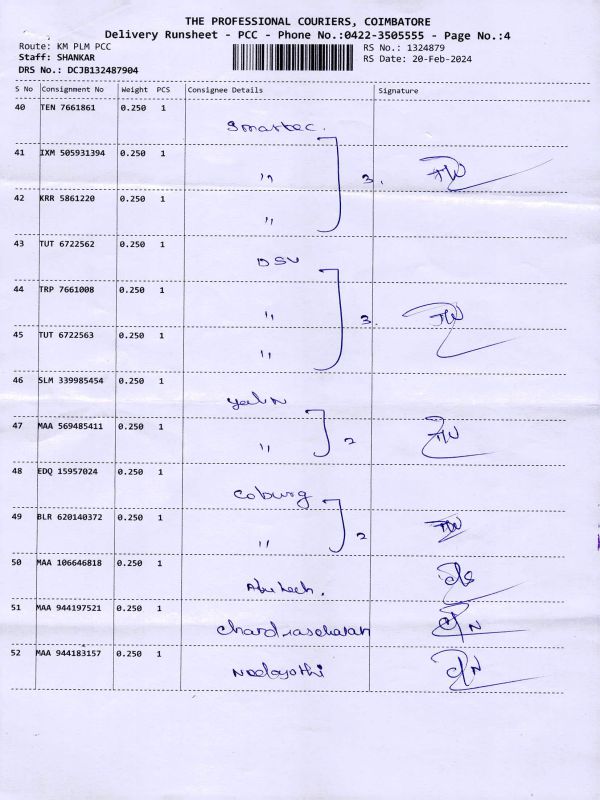 THE PROFESSIONAL COURIERS, COIMBATORE
Delivery Runsheet - PCC - Phone No.:0422-3505555 - Page No.:4
Route: KM PLM PCC
RS No.: 1324879
Staff: SHANKAR
RS Date: 20-Feb-2024
DRS No.: DCJB132487904
S No Consignment No Weight PCS Consignee Details Signature
40 TEN 7661861 0.250 1
Smartec.
41 IXM 505931394 0.250 1
" 3.
42 KRR 5861220 0.250 1
"
43 TUT 6722562 0.250 1
DSV
44 TRP 7661008 0.250 1
" 3.
45 TUT 6722563 0.250 1
"
46 SLM 339985454 0.250 1
47 MAA 569485411 0.250 1
" 2
48 EDQ 15957024 0.250 1
Coburg
49 BLR 620140372 0.250 1
" 2
50 MAA 106646818 0.250 1
51 MAA 944197521 0.250 1
Chandrasekaran
52 MAA 944183157 0.250 1